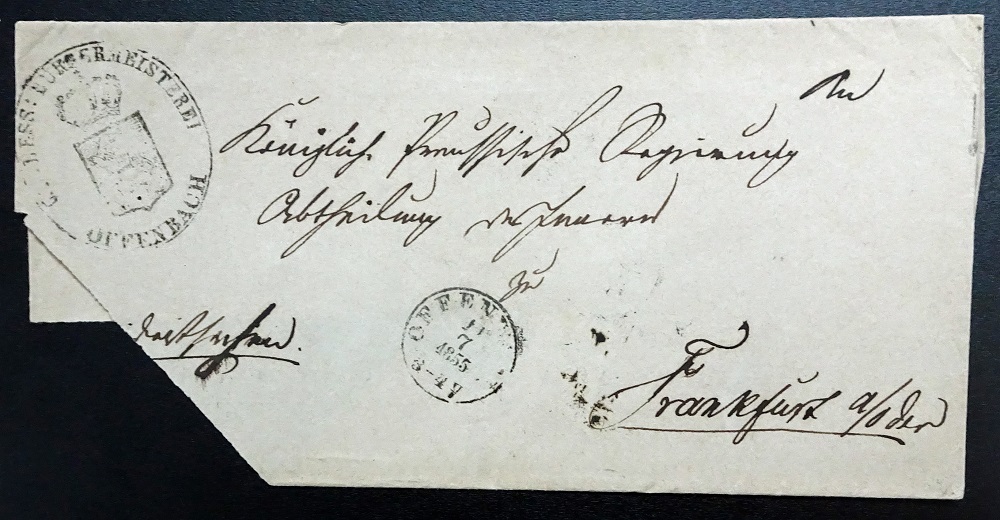 G. HESS: BÜRGERMEISTEREI
OFFENBACH
An
Königlich Preussische Regierung
Abtheilung des Innern
zu
Frankfurt a/Oder
OFFENB
7
1855